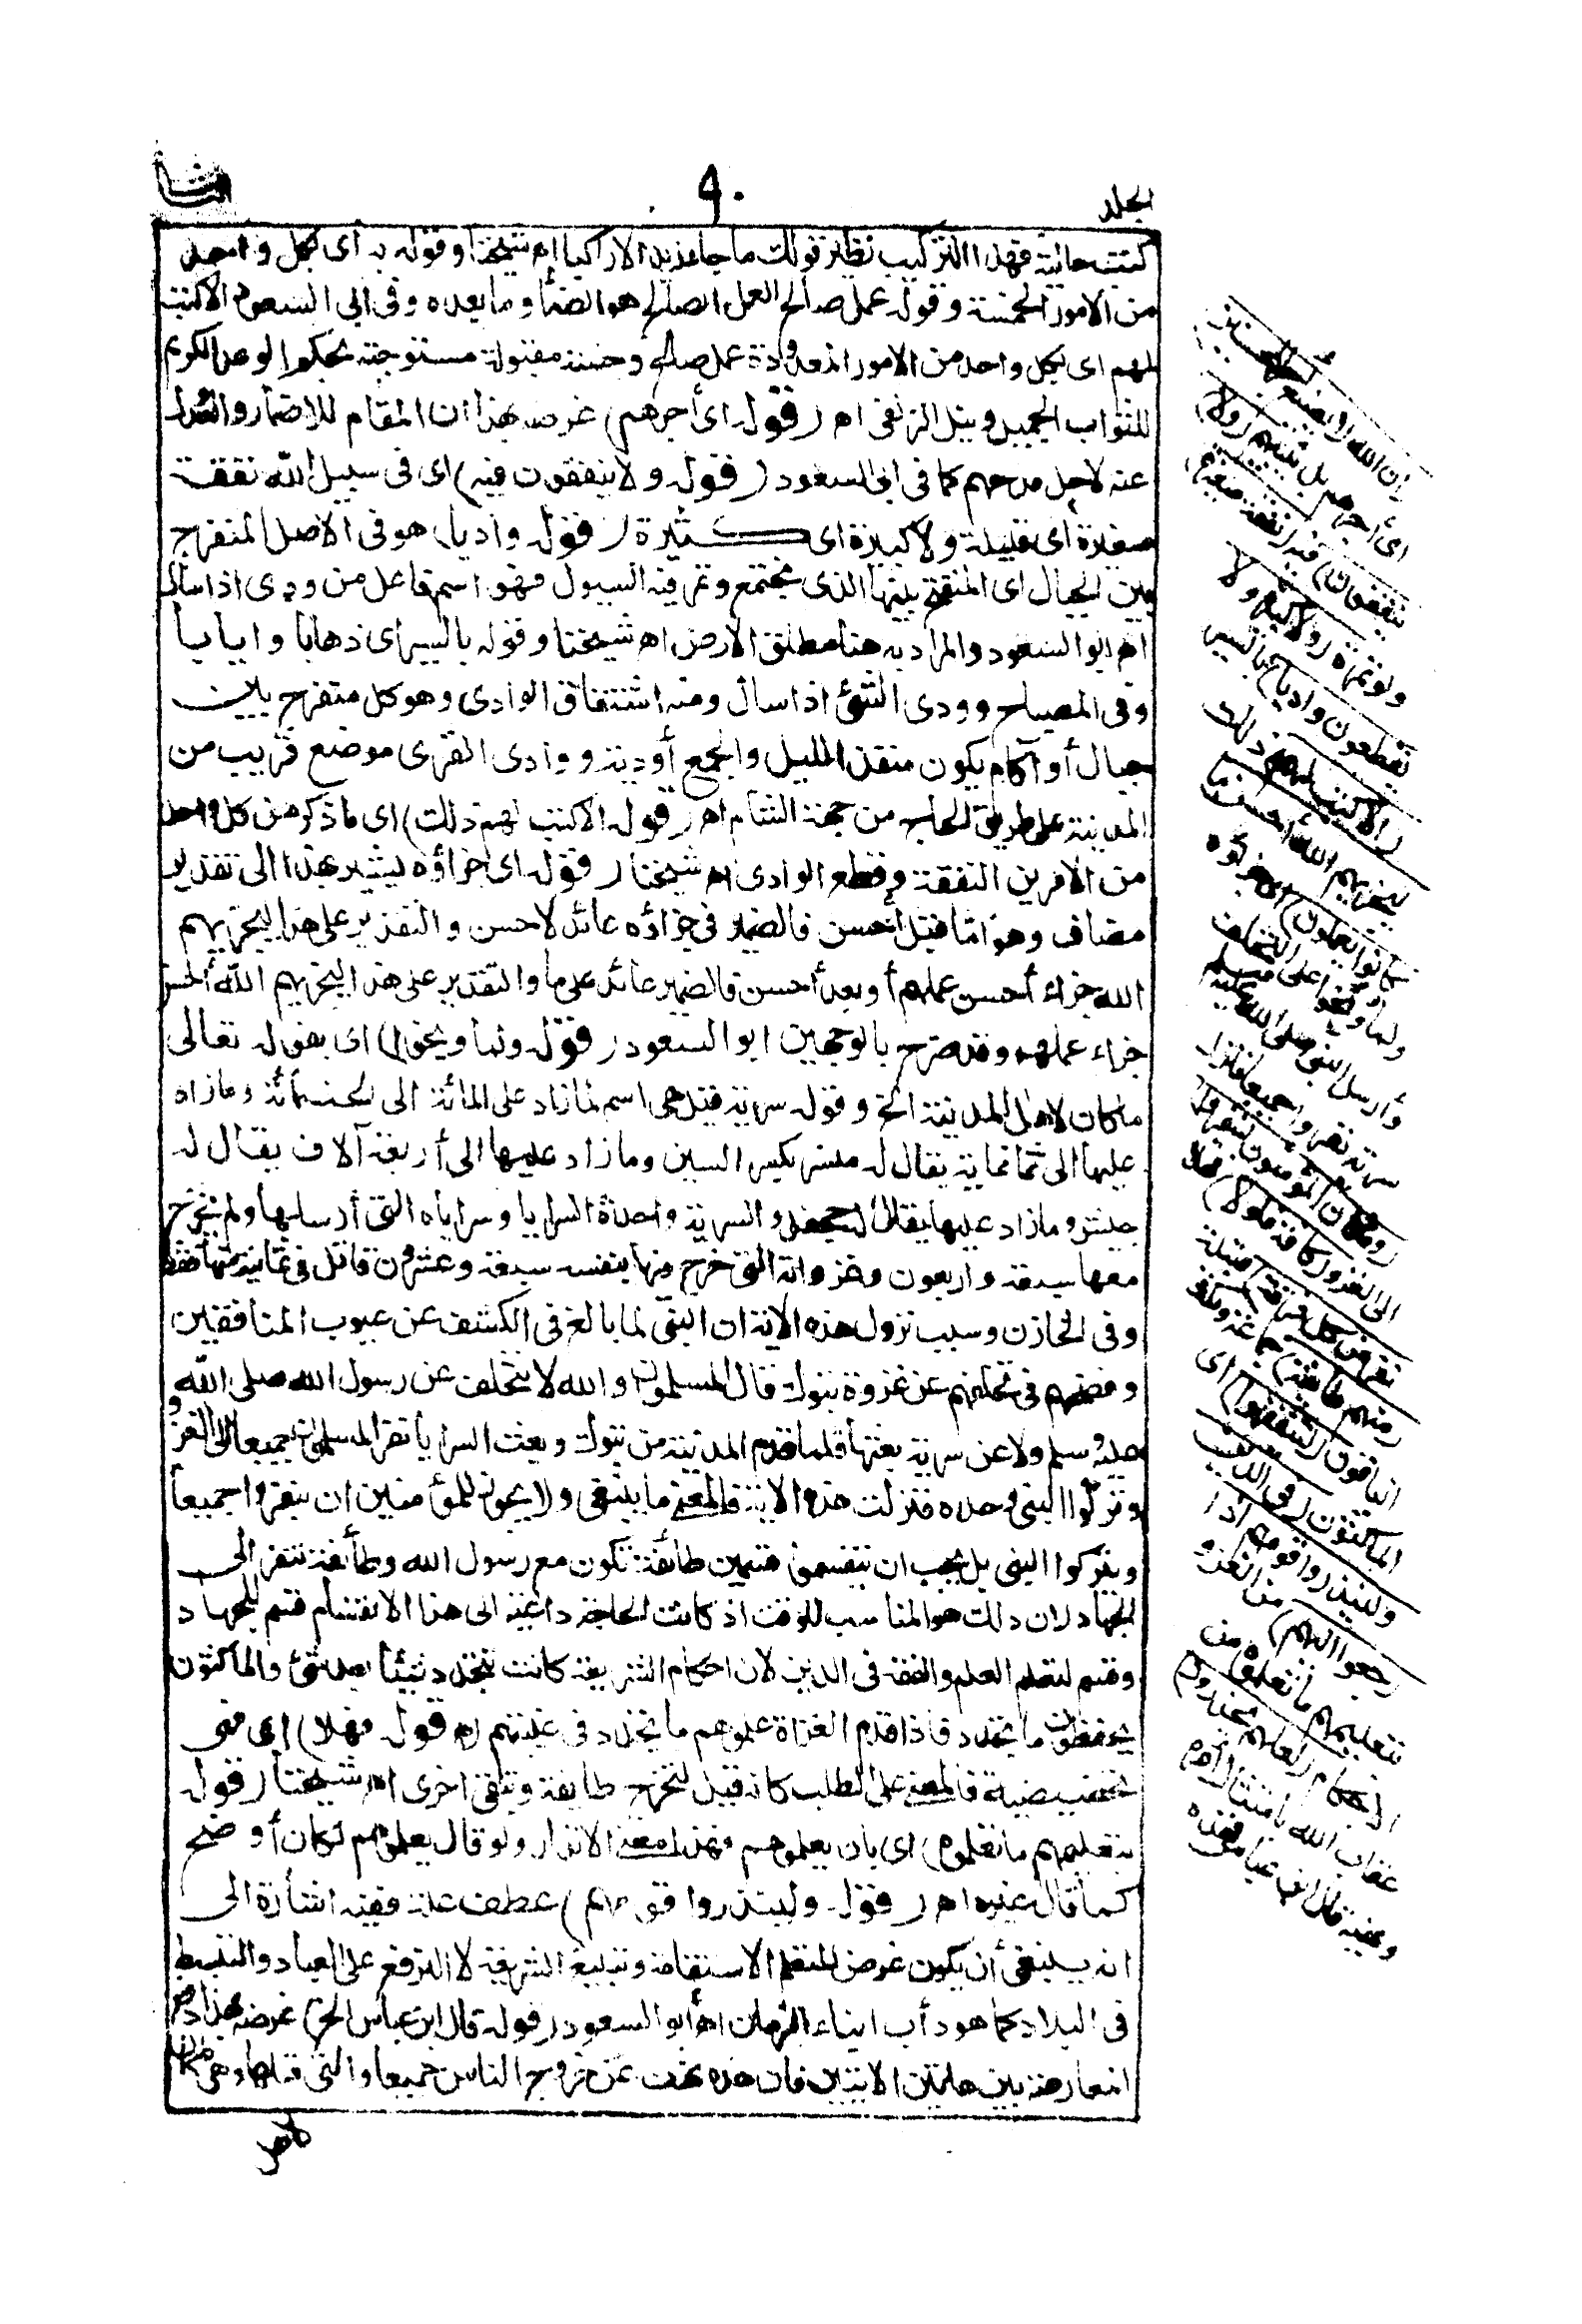 الجلد
٩٠
كتبت حالية فهذا التركيب نظير قولك ما جاء زيد الا راكبا اه شيخنا وقوله به أى بكل واحد
من الامور الخمسة وقوله عمل صالح العمل الصالح هو الظمأ وما بعده وفى ابى السعود الا كتب
لهم اى بكل واحد من الامور المعدودة عمل صالح وحسنة مقبولة مستوجبة بحكم الوعد الكريم
للثواب الجميل ونيل الزلفى اه (قوله اى أجرهم) غرضه بهذا ان المقام للاضمار والعدول
عنه لاجل مدحهم كما فى ابى السعود (قوله ولا ينفقون فيه) اى فى سبيل الله نفقة
صغيرة أى قليلة ولا كبيرة اى كثيرة (قوله واديا) هو فى الاصل المنفرج
بين الجبال اى المنفتح بينها الذى يجتمع وتمر فيه السيول فهو اسم فاعل من ودى اذا سال
اه ابو السعود والمراد به هنا مطلق الارض اه شيخنا وقوله بالسير أى ذهابا وايابا
وفى المصباح وودى الشئ اذا سال ومنه اشتقاق الوادى وهو كل منفرج بين
جبال أو آكام يكون منفذا للسيل والجمع أودية ووادى القرى موضع قريب من
المدينة على طريق الحاج من جهة الشام اه (قوله الا كتب لهم ذلك) اى ما ذكر من كل واحد
من الامرين النفقة وقطع الوادى اه شيخنا (قوله اى جزاؤه) يشير بهذا الى تقدير
مضاف وهو اما قبل أحسن فالضمير فى جزاؤه عائد لاحسن والتقدير على هذا ليجزيهم
الله جزاء أحسن عملهم أو بعد أحسن فالضمير عائد على ما والتقدير على هذا ليجزيهم الله أحسن
جزاء عملهم وقد صرح بالوجهين ابو السعود (قوله ولما وبخوا) اى بقوله تعالى
ما كان لاهل المدينة الخ وقوله سرية قيل هى اسم لما زاد على المائة الى الخمسمائة وما زاد
عليها الى ثمانمائة يقال له منسر بكسر السين وما زاد عليها الى أربعة آلاف يقال له
جيش وما زاد عليها يقال له جحفل والسرية واحدة السرايا وسراياه التى أرسلها ولم يخرج
معها سبعة واربعون وغزواته التى خرج فيها بنفسه سبعة وعشرون قاتل فى ثمانية منها فقط
وفى الخازن وسبب نزول هذه الاية ان النبى لما بالغ فى الكشف عن عيوب المنافقين
وفضحهم فى تخلفهم عن غزوة تبوك قال المسلمون والله لا نتخلف عن رسول الله صلى الله
عليه وسلم ولا عن سرية بعثها فلما قدم المدينة من تبوك وبعث السرايا نفر المسلمون جميعا الى الغزو
وتركوا النبى وحده فنزلت هذه الاية فالمعنى ما ينبغى ولا يجوز للمؤمنين ان ينفروا جميعا
ويتركوا النبى بل يجب ان ينقسموا قسمين طائفة تكون مع رسول الله وطائفة تنفر الى
الجهاد لان ذلك هو المناسب للوقت اذ كانت الحاجة داعية الى هذا الانقسام قسم للجهاد
وقسم لتعلم العلم والفقه فى الدين لان احكام الشريعة كانت تتجدد شيئا بعد شئ والماكثون
يحفظون ما تجدد فاذا قدم الغزاة علموهم ما تجدد فى غيبتهم اه (قوله فهلا) اى فهى
تحضيضية فالمعنى على الطلب كانه قيل لتخرج طايفة وتبقى اخرى اه شيخنا (قوله
بتعليمهم ما تعلموه) اى بان يعلموهم فهذا معنى الانذار ولو قال يعلموهم لكان أوضح
كما قال غيره اه (قوله ولينذروا قومهم) عطف علة ففيه اشارة الى
انه ينبغى أن يكون غرض المتعلم الاستقامة وتبليغ الشريعة لا الترفع على العباد والتبسط
فى البلاد كما هو دأب ابناء الزمان اه أبو السعود (قوله قال ابن عباس الخ) غرضه بهذا دفع
المعارضة بين هاتين الايتين فان هذه نهت عن خروج الناس جميعا والتى قبلها وهى
ان الله لا يضيع أجر المحسنين
اى أجرهم بل يثيبهم (ولا
ينفقون) فيه (نفقة صغيرة)
ولو تمرة (ولا كبيرة ولا
يقطعون واديا) بالسير
(الا كتب لهم) ذلك
ليجزيهم الله أحسن ما
كانوا يعملون) اى جزاؤه
ولما وبخوا على التخلف
وأرسل النبى صلى الله عليه وسلم
سرية نفروا جميعا فنزل
(وما كان المؤمنون لينفروا)
الى الغزو (كافة فلولا) فهلا
نفر من كل فرقة) قبيلة
(منهم طائفة) جماعة ومكث
الباقون (ليتفقهوا) اى
الماكثون (فى الدين
ولينذروا قومهم اذا
رجعوا اليهم) من الغزو
بتعليمهم ما تعلموه من
الاحكام (لعلهم يحذرون)
عقاب الله بامتثال أمره
ونهيه قال ابن عباس فهذه